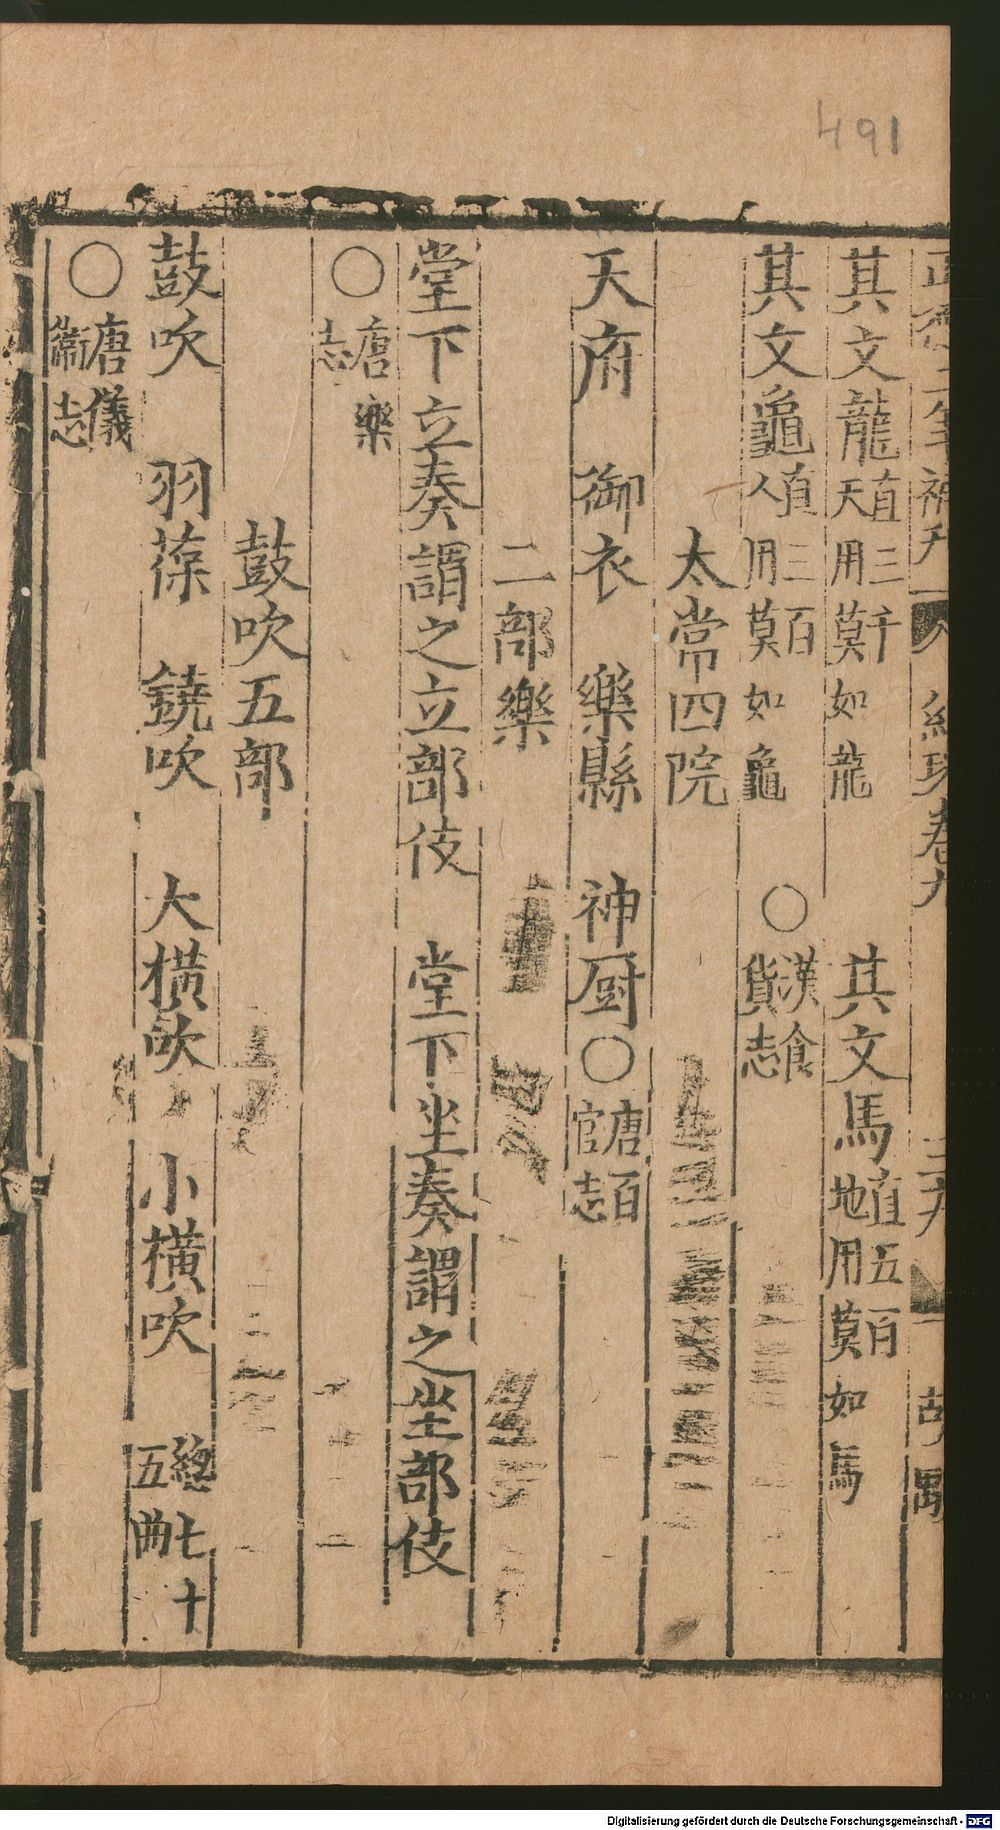 491
正德二年補刊 紺珠卷九 三九 胡
其文龍直三千天用莫如龍 其文馬直五百地用莫如馬
其文龜直三百人用莫如龜 ○漢食貨志
太常四院
天府 御衣 樂縣 神厨○唐百官志
二部樂
堂下立奏謂之立部伎 堂下坐奏謂之坐部伎
○唐樂志
鼓吹五部
鼓吹 羽葆 鐃吹 大橫吹 小橫吹 總七十五曲
○唐儀衞志
Digitalisierung gefördert durch die Deutsche Forschungsgemeinschaft - DFG